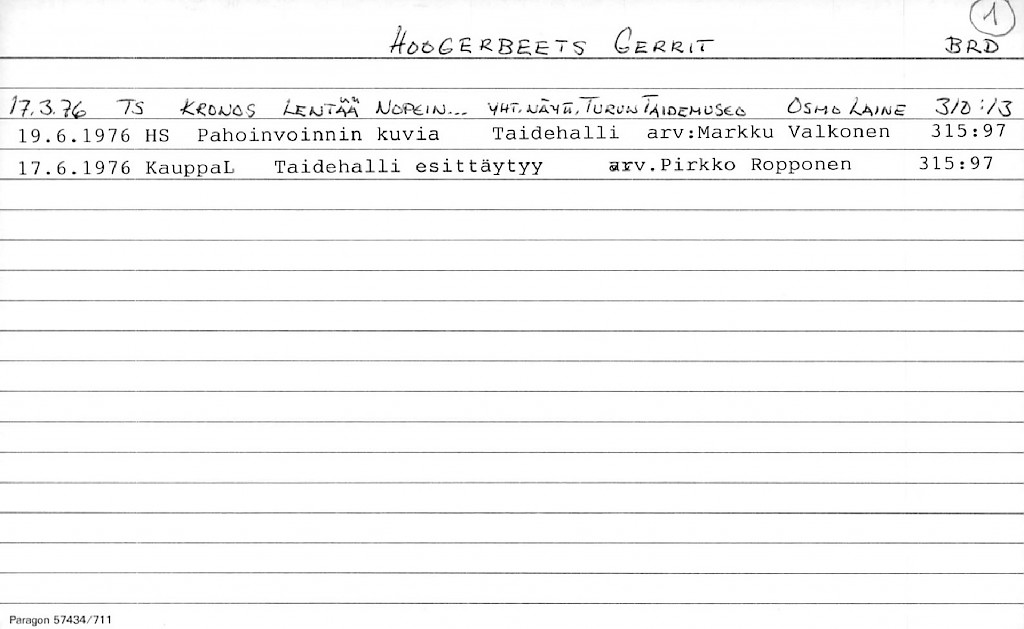 1
HOOGERBEETS GERRIT BRD
17.3.76 TS KRONOS LENTÄÄ NOPEIN... YHT.NÄYTT. TURUN TAIDEMUSEO OSMO LAINE 310:13
19.6.1976 HS Pahoinvoinnin kuvia Taidehalli arv:Markku Valkonen 315:97
17.6.1976 KauppaL Taidehalli esittäytyy arv.Pirkko Ropponen 315:97
Paragon 57434/711